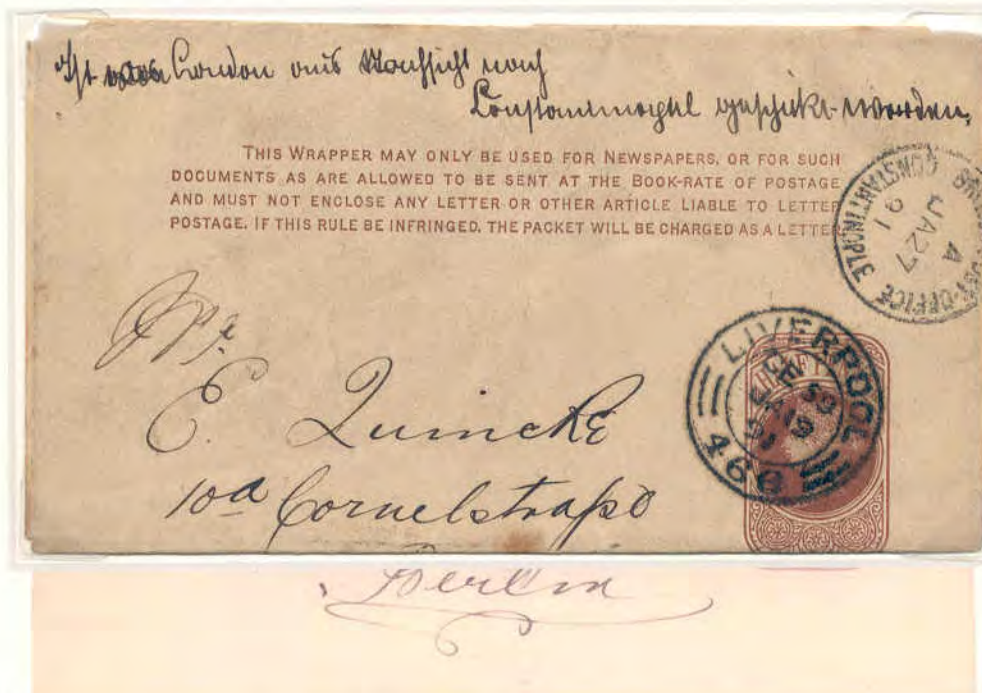 Ist von London aus Nachsicht nach
Constantinopel geschickt worden.
THIS WRAPPER MAY ONLY BE USED FOR NEWSPAPERS, OR FOR SUCH
DOCUMENTS AS ARE ALLOWED TO BE SENT AT THE BOOK-RATE OF POSTAGE
AND MUST NOT ENCLOSE ANY LETTER OR OTHER ARTICLE LIABLE TO LETTER
POSTAGE. IF THIS RULE BE INFRINGED, THE PACKET WILL BE CHARGED AS A LETTER
POST-OFFICE CONSTANTINOPLE
A
JA 27
91
LIVERPOOL
466
E. Quincke
10a Cornelstraße
Berlin